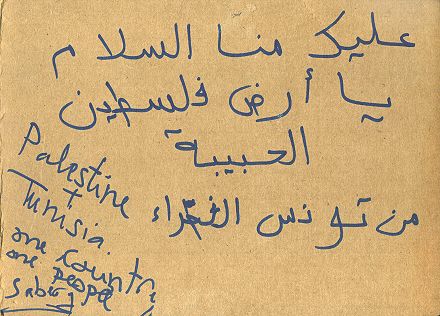 عليك منا السلام
يا أرض فلسطين
الحبيبة
من تونس الخضراء
Palestine
+
Tunisia.
one country
one people